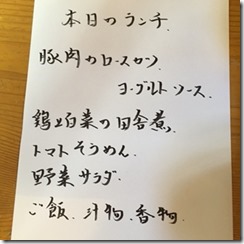 本日のランチ
豚肉のロースカン
ヨーグルトソース
鶏と白菜の田舎煮
トマトそうめん
野菜サラダ
ご飯、汁物、香物